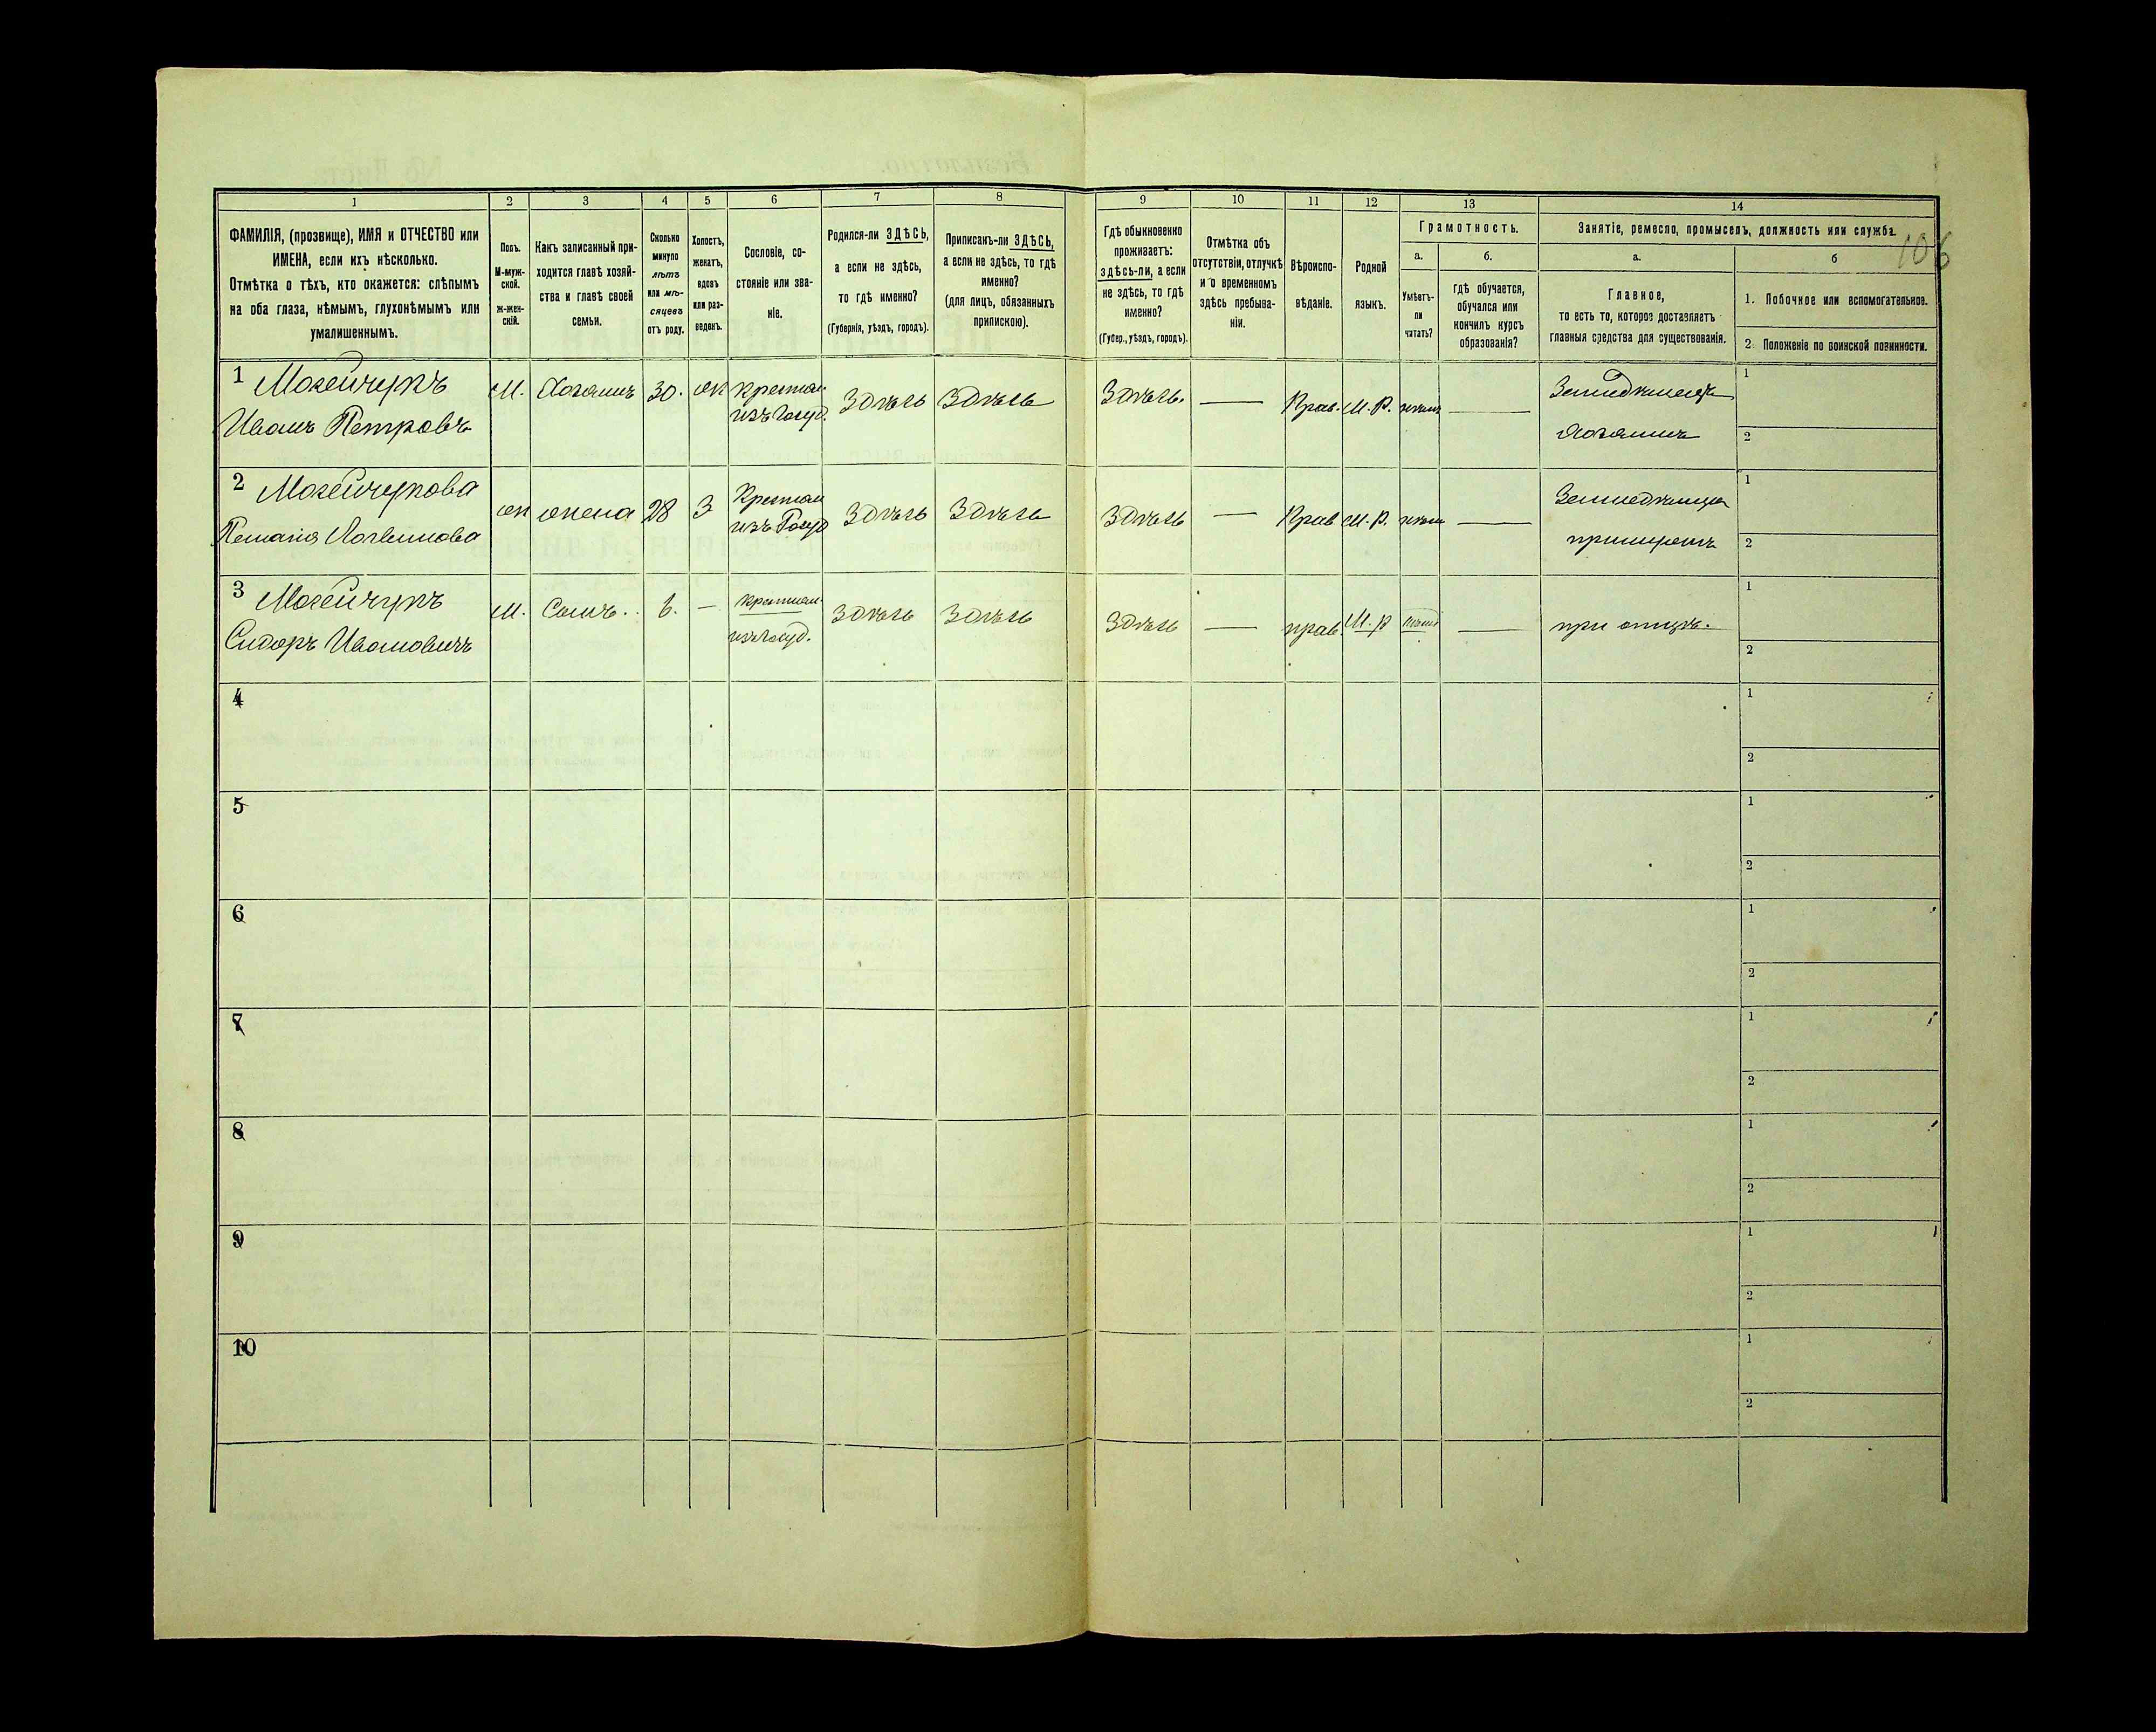 106
1
2
3
4
5
6
7
8
9
10
11
12
13
14
ФАМИЛІЯ, (прозвище), ИМЯ и ОТЧЕСТВО или
ИМЕНА, если ихъ нѣсколько.
Отмѣтка о тѣхъ, кто окажется: слѣпымъ
на оба глаза, нѣмымъ, глухонѣмымъ или
умалишеннымъ.
Полъ.
М-муж-
ской.
ж-жен-
скій.
Какъ записанный при-
ходится главѣ хозяй-
ства и главѣ своей
семьи.
Сколько
минуло
лѣтъ
или мѣ-
сяцевъ
отъ роду.
Холостъ,
женатъ,
вдовъ
или раз-
веденъ.
Сословіе, со-
стояніе или зва-
ніе.
Родился-ли ЗДѢСЬ,
а если не здѣсь,
то гдѣ именно?
(Губернія, уѣздъ, городъ).
Приписанъ-ли ЗДѢСЬ,
а если не здѣсь, то гдѣ
именно?
(для лицъ, обязанныхъ
припискою).
Гдѣ обыкновенно
проживаетъ:
здѣсь-ли, а если
не здѣсь, то гдѣ
именно?
(Губер., уѣздъ, городъ).
Отмѣтка объ
отсутствіи, отлучкѣ
и о временномъ
здѣсь пребыва-
ніи.
Вѣроиспо-
вѣданіе.
Родной
языкъ.
Грамотность.
а.
Умѣетъ-
ли
читать?
б.
гдѣ обучается,
обучался или
кончилъ курсъ
образованія?
Занятіе, ремесло, промыселъ, должность или служба.
а.
Главное,
то есть то, которое доставляетъ
главныя средства для существованія.
б
1. Побочное или вспомогательное.
2. Положеніе по воинской повинности.
1 Мозейчукъ
Иванъ Петровъ
М. Хозяинъ 30. ж
крестьян.
изъ Госуд.
Здѣсь Здѣсь Здѣсь. — Прав. М. Р. —
Хозяинъ
1
2
2 Мозейчукова
Логвинова
ж жена 28 З
Крестьян
изъ Госуд
Здѣсь Здѣсь Здѣсь — Прав М. Р. —
1
2
3 Мозейчукъ
Сидоръ Ивановичъ
М. Сынъ. 6. —
крестьян.
изъ Госуд.
Здѣсь Здѣсь Здѣсь — прав. М. р —
при отцѣ.
1
2
4
1
2
5
1
2
6
1
2
7
1
2
8
1
2
9
1
2
10
1
2